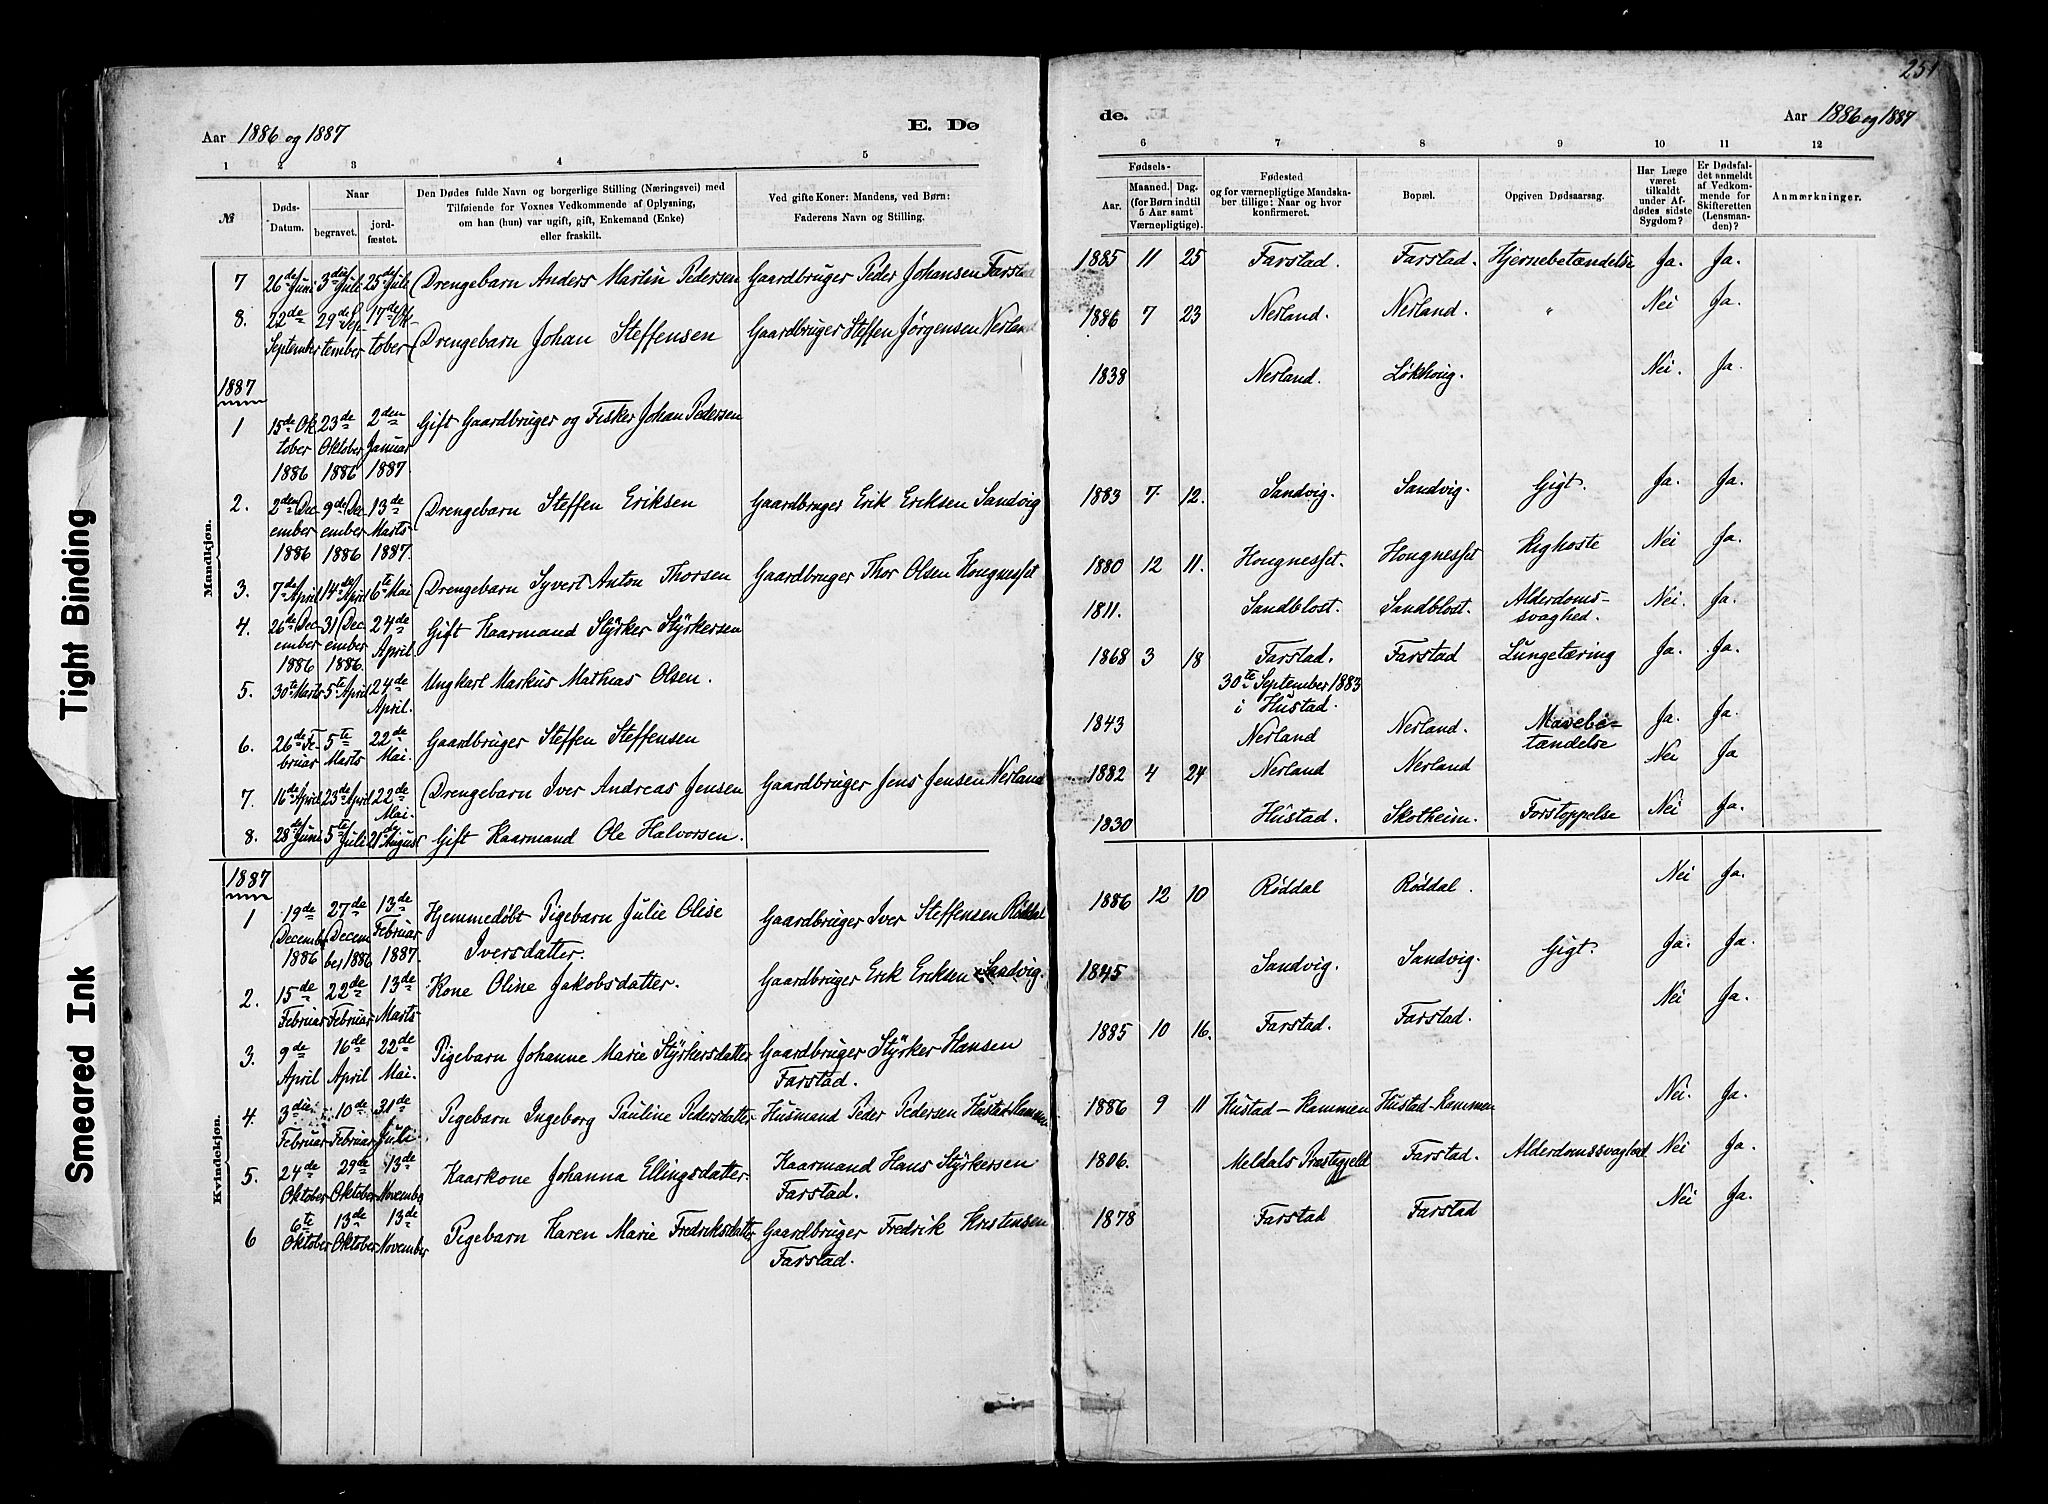 251
Aar 1886 og 1887
E. Dø
de.
Aar 1886 og 1887
1 2 3 4 5 6 7 8 9 10 11 12
№
Døds-Datum.
Naar
begravet.
jordfæstet.
Den Dødes fulde Navn og borgerlige Stilling (Næringsvei) med
Tilføiende for Voxnes Vedkommende af Oplysning,
om han (hun) var ugift, gift, Enkemand (Enke)
eller fraskilt.
Ved gifte Koner: Mandens, ved Børn:
Faderens Navn og Stilling.
Fødsels-
Aar.
Maaned. Dag.
(for Børn indtil
5 Aar samt
Værnepligtige).
Fødested
og for værnepligtige Mandska-
ber tillige: Naar og hvor
konfirmeret.
Bopæl.
Opgiven Dødsaarsag.
Har Læge
været
tilkaldt
under Af-
dødes sidste
Sygdom?
Er Dødsfal-
det anmeldt
af Vedkom-
mende for
Skifteretten
(Lensman-
den)?
Anmærkninger.
Mandkjøn.
7 26de Juni 3die Juli 25de Juli Drengebarn Anders Martin Pedersen Gaardbruger Peder Johansen Farstad 1885 11 25 Farstad. Farstad. Hjernebetændelse Ja. Ja.
8. 22de September 29de September 17de Oktober Drengebarn Johan Steffensen Gaardbruger Steffen Jørgensen Nerland 1886 7 23 Nerland. Nerland. " Nei Ja.
1887
1 15de Oktober 1886 23de Oktober 1886 2den Januar 1887. Gift Gaardbruger og Fisker Johan Pedersen 1838 Nerland. Løkhoug. Nei. Ja.
2. 2den December 1886 9de December 1886 13de Marts 1887. Drengebarn Steffen Eriksen Gaardbruger Erik Eriksen Sandvig 1883 7. 12. Sandvig. Sandvig. Gigt. Ja. Ja.
3. 7de April 14de April 6te Mai Drengebarn Syvert Anton Thorsen Gaardbruger Thor Olsen Hougnesset 1880 12 11. Hougnesset. Hougnesset Kighoste Nei Ja.
4. 26de December 1886 31 December 1886. 24de April. Gift Kaarmand Stÿrker Stÿrkersen 1811. Sandblost. Sandblost. Alderdoms-svaghed. Nei. Ja.
5. 30te Marts 5te April 24de April. Ungkarl Markus Mathias Olsen. 1868 3 18 Farstad. 30te September 1883 i Hustad. Farstad Lungetæring Ja. Ja.
6. 26de Februar 5te Marts 22de Mai. Gaardbruger Steffen Steffensen 1843 Nerland Nerland. Mavebe-tændelse Ja. Ja.
7. 16de April 23de April 22de Mai. Drengebarn Iver Andreas Jensen Gaardbruger Jens Jensen Nerland 1882 4 24 Nerland Nerland Nei Ja
8. 28de Juni 5te Juli 21de August Gift Kaarmand Ole Halvorsen. 1830 Hustad. Skotheim. Forstoppelse Nei Ja.
Kvindekjøn.
1887
1 19de December 1886 27de December 1886 13de Februar 1887. Hjemmedøbt Pigebarn Julie Olise Iversdatter. Gaardbruger Iver Steffensen Røddal 1886 12 10 Røddal Røddal. Nei Ja.
2. 15de Februar 22de Februar 13de Marts Kone Oline Jakobsdatter. Gaardbruger Erik Eriksen Sandvig. 1845 Sandvig. Sandvig. Gigt. Ja. Ja.
3. 9de April 16de April 22de Mai. Pigebarn Johanne Marie Stÿrkersdatter Gaardbruger Stÿrker Hansen Farstad. 1885 10 16. Farstad. Farstad. Nei Ja.
4. 3die Februar 10de Februar 31de Juli. Pigebarn Ingeborg Pauline Pedersdatter Husmand Peder Pedersen Hustad-Kammen 1886 9 11 Hustad-Kammen Hustad-Kammen Nei. Ja.
5. 24de Oktober 29de Oktober 13de November Kaarkone Johanna Ellingsdatter. Kaarmand Hans Stÿrkersen Farstad. 1806. Meldals Præstegjeld Farstad. Alderdomssvaghed Nei Ja.
6 6te Oktober 13de Oktober 13de November Pigebarn Karen Marie Fredriksdatter Gaardbruger Fredrik Kristensen Farstad. 1878 Farstad Farstad Nei Ja.
Tight Binding
Smeared Ink